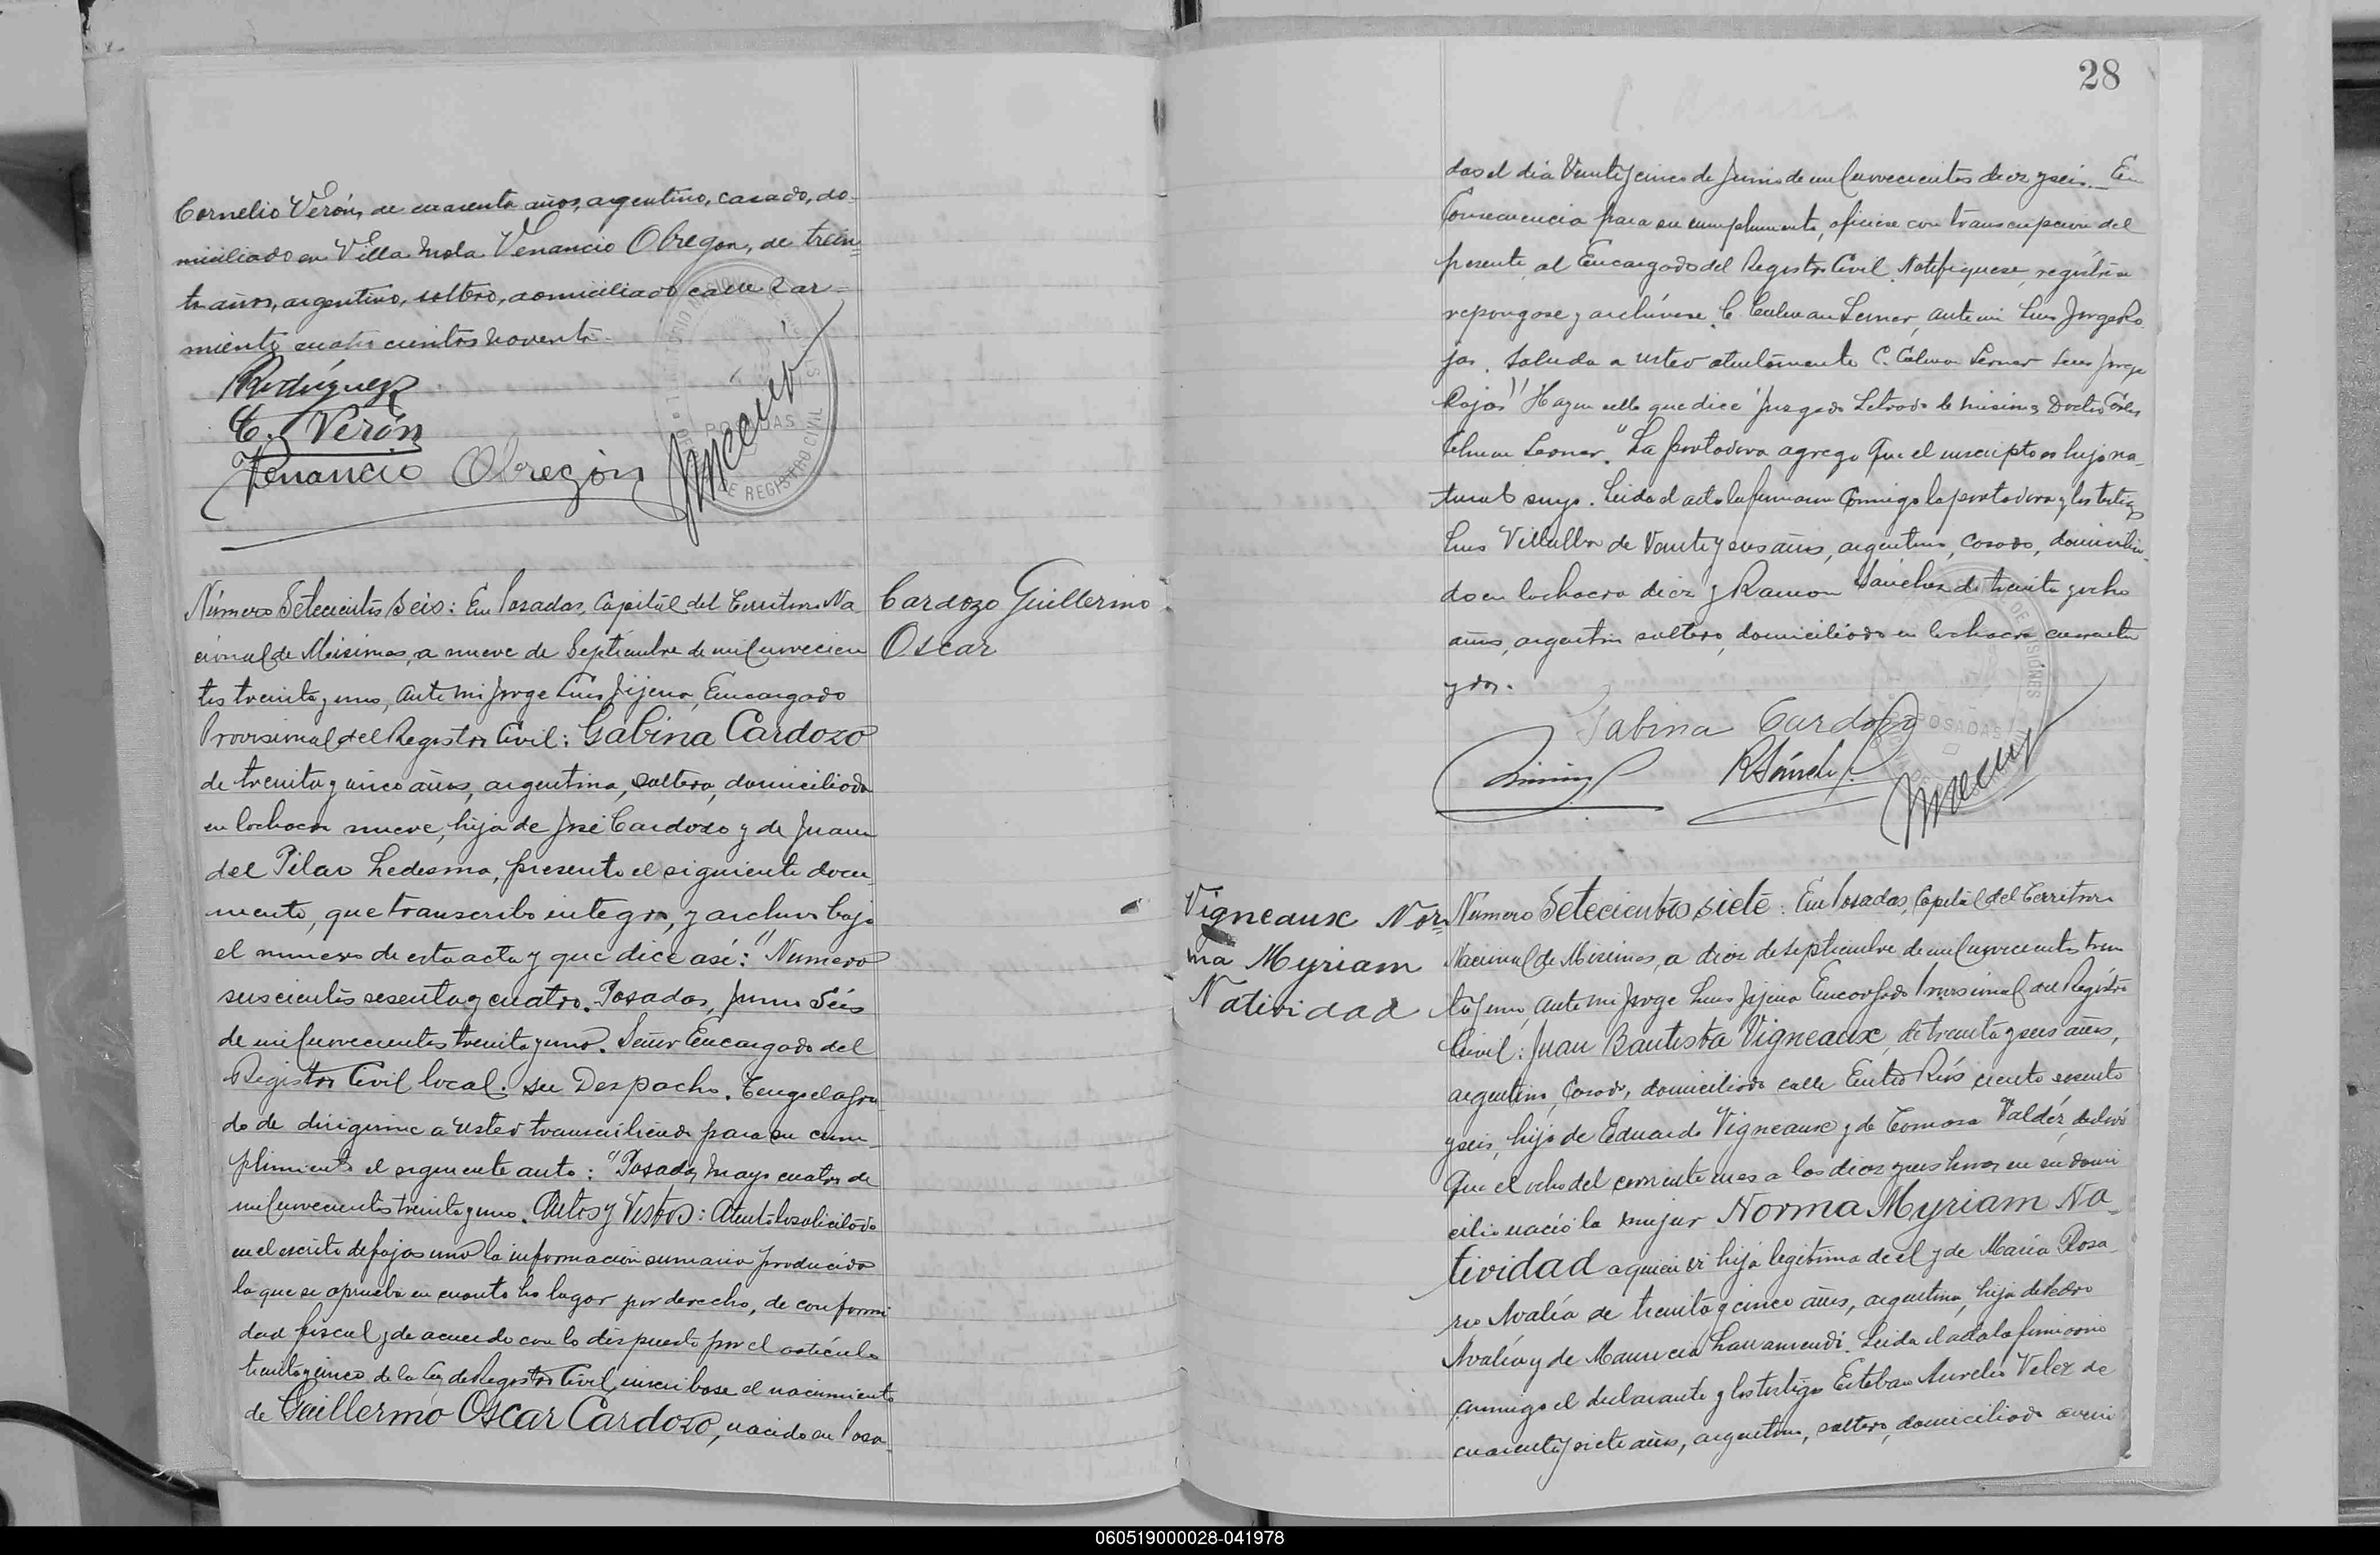 Cornelio Verón, de cuarenta años, argentino, casado, do-
miciliado en Villa Mola Venancio Obregon, de trein=
ta años, argentino, soltero, domiciliado calle Sar=
miento cuatrocientos noventa.
Rodríguez
C. Verón
Venancio Obregón
POSADAS
DE REGISTRO CIVIL
Número Setecientos Seis: En Posadas, Capital del Territorio Na
cional de Misiones, a nueve de Septiembre de mil novecien
tos treinta y uno, ante mi Jorge Luis Jijena, Encargado
Provisional del Registro Civil: Gabina Cardozo
de treinta y cinco años, argentina, soltera, domiciliada
en la chacra nueve, hija de José Cardozo y de Juana
del Pilar Ledesma, presenta el siguiente docu-
mento, que transcribo integro, y archivo bajo
el numero de esta acta y que dice así: "Numero
seiscientos sesenta y cuatro. Posadas, Junio Seis
de mil novecientos treinta y uno. Señor Encargado del
Registro Civil local. su Despacho. Tengo el agra
do de dirigirme a usted transcribiendo para su cum-
plimiento el siguiente auto: "Posadas, Mayo cuatro de
mil novecientos treinta y uno. Autos y Vistos: Atento lo solicitado
en el escrito de fojas uno la información sumaria producida
la que se aprueba en cuanto ha lugar por derecho, de conformi
dad fiscal y de acuerdo con lo dispuesto por el artículo
treinta y cinco de la Ley de Registro Civil, inscríbase el nacimiento
de Guillermo Oscar Cardozo, nacido en Posa-
Cardozo Guillermo
Oscar
28
das el día Veinte y cinco de Junio de mil novecientos diez y seis. En
Consecuencia para su cumplimiento, oficiese con transcripcion del
presente al Encargado del Registro Civil. Notifiquese, regístrese
repongase y archívese. C. Calman Lerner, ante mi Luis Jorge Ro
jas. Saluda a usted atentamente C. Calman Lerner Luis Jorge
Rojas" Hay un sello que dice "Juzgado Letrado de Misiones Doctor
Lerner." La portadora agrega que el inscripto es hijo na-
tural suyo. Leida el acta la firmaron conmigo la portadora y los testigos
Luis Villalba de Veinte y seis años, argentino, casado, domicilia-
do en la chacra diez y Ramon Sanchez de treinta y ocho
años, argentino soltero, domiciliado en la chacra cuarenta
y dos.
Gabina Cardozo
R Sánchez
POSADAS
Vigneaux Nor=
ma Myriam
Natividad
Número Setecientos siete: En Posadas, Capital del Territorio
Nacional de Misiones, a diez de septiembre de mil novecientos trein
ta y uno, ante mi Jorge Luis Jijena Encargado Provisional del Registro
Civil: Juan Bautista Vigneaux, de treinta y seis años,
argentino, casado, domiciliado calle Entre Ríos ciento sesenta
y seis, hijo de Eduardo Vigneaux y de Tomasa Valdéz, declaró
Que el ocho del corriente mes a las diez y seis horas en su domi
cilio nació la mujer Norma Myriam Na-
tividad a quien es hija legitima de el y de María Rosa-
rio Avalía de treinta y cinco años, argentina, hija de Pedro
Avalía y de Mauricia Larramendi. Leida el acta la firmaron
conmigo el declarante y los testigos Esteban Aurelio Velez de
cuarenta y siete años, argentino, soltero, domiciliado aveni
060519000028-041978